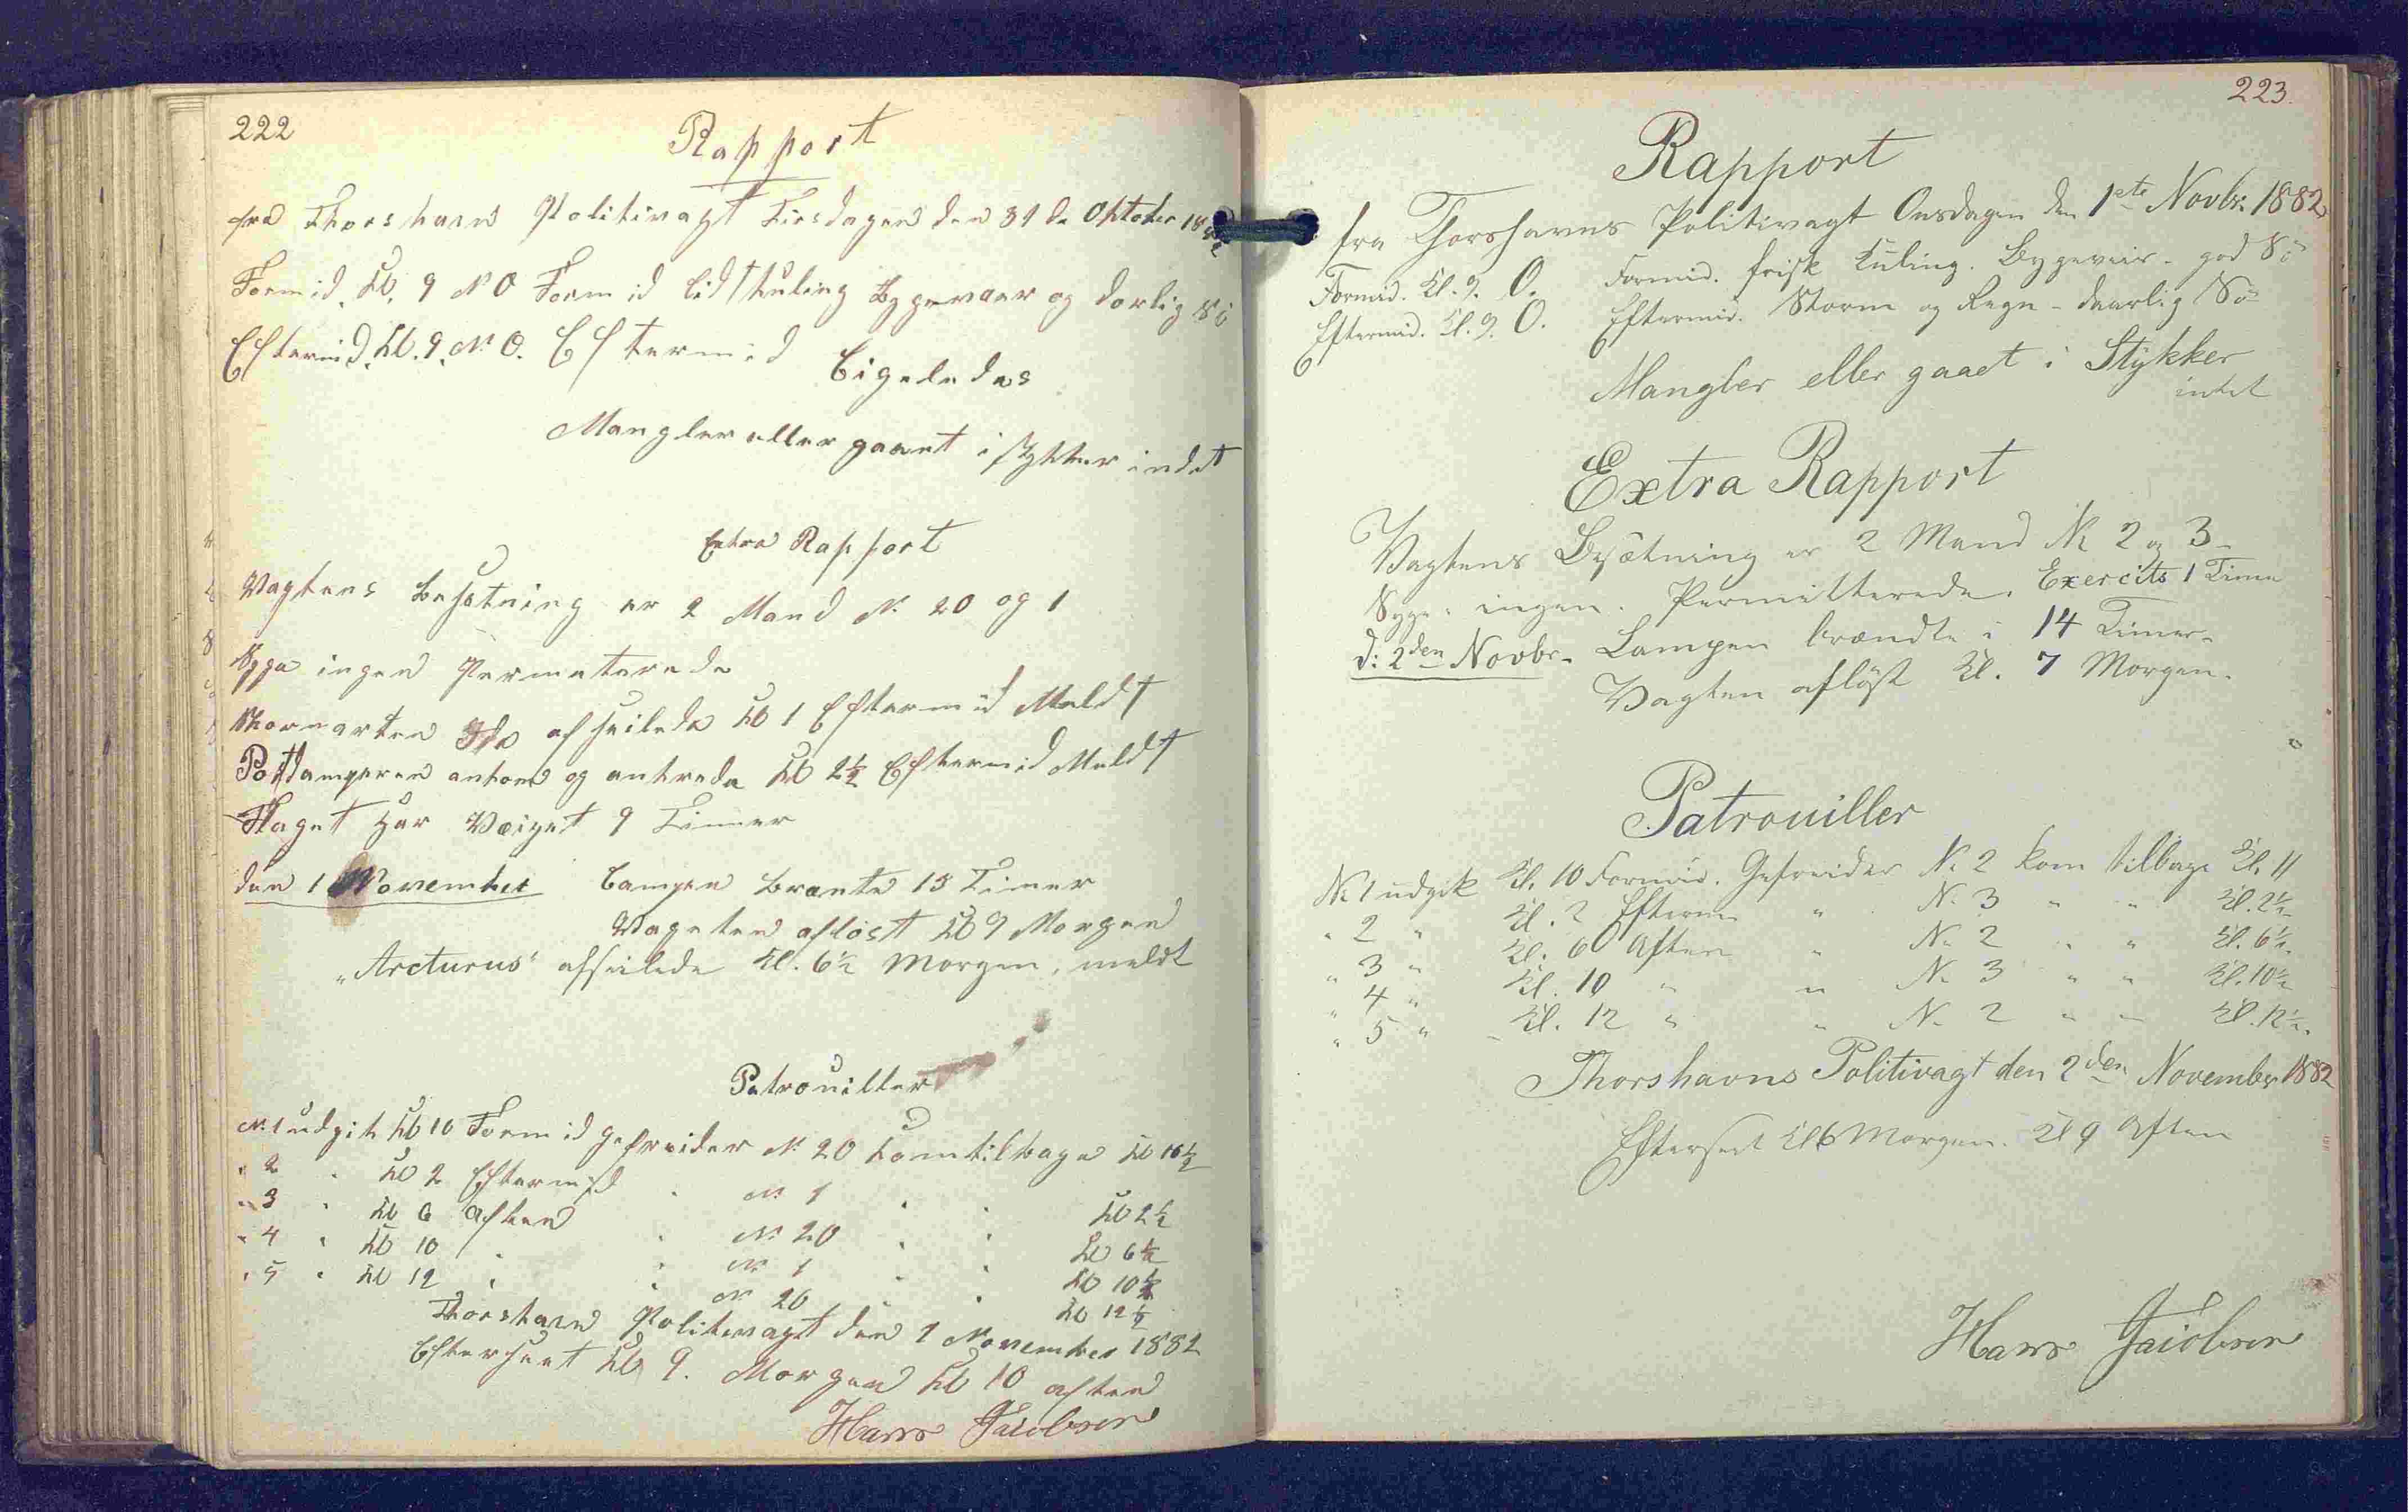 222
Rapport
fra Thorshavn Politivagt Tirsdagen den 31 de Oktober 1882
Formid. Kl. 9 N O Formid lidt kuling Bygevær og dorlig Sö
Eftermid. Kl. 9. N O. Eftermid Ligeledes
Mangler eller gaaet i stykker indet
Extra Rapport
Vagtens Besetning er 2 Mand N. 20 og 1
Syge ingen Permeterede
afseilede Kl 1 Eftermid Meldt
Postdamperen ankom og ankrede Kl 2½ Eftermid Meldt
Flaget har Væiget 9 Timer
den 1 November Lampen brante 15 Timer
Vageten aflöst Kl 9 Morgen
"Arcturus" afseilede Kl. 6½ Morgen, meldt
Patrouiller
N. 1 udgik Kl 10 Formid gefreider N. 20 kom tilbage Kl 10½
" 2 " Kl 2 Eftermid " N. 1 " " Kl 2½
" 3 " Kl 6 Aften " N. 20 " " Kl 6½
" 4 " Kl 10 " " N. 1 " " Kl 10½
" 5 " Kl 12 " " N 20 " " Kl 12½
Thorshavn Politivagt den 1 November 1882
Efterseet Kl 9. Morgen Kl 10 aften
Hans Jacobsen
223.
Rapport
fra Thorshavns Politivagt Onsdagen den 1ste Novbr. 1882
Formid. Kl. 9. O. Formid. frisk Kuling. Bygeveir - god Sö
Eftermid. Kl. 9. O. Eftermid. Storm og Regn - daarlig Sö
Mangler eller gaaet i Stykker
intet
Extra Rapport
Vagtens Besætning er 2 Mand N. 2 og 3 -
Syge: ingen. Permitterede. Exercits 1 Time
d: 2den Novbr. Lampen brændte i 14 Timer.
Vagten aflöst Kl. 7 Morgen.
Patrouiller
N. 1 udgik Kl. 10 Formid. Gefreider N. 2 kom tilbage Kl. 11
" 2 " Kl. 2 Efterm " N. 3 " " Kl. 2½
" 3 " Kl. 6 Aften " N. 2 " " Kl. 6½
" 4 " Kl. 10 " " N. 3 " " Kl. 10½
" 5 " Kl. 12 " " N. 2 " " Kl. 12½.
Thorshavns Politivagt den 2den November 1882
Efterseet Kl 6 Morgen. Kl 9 Aften
Hans Jacobsen